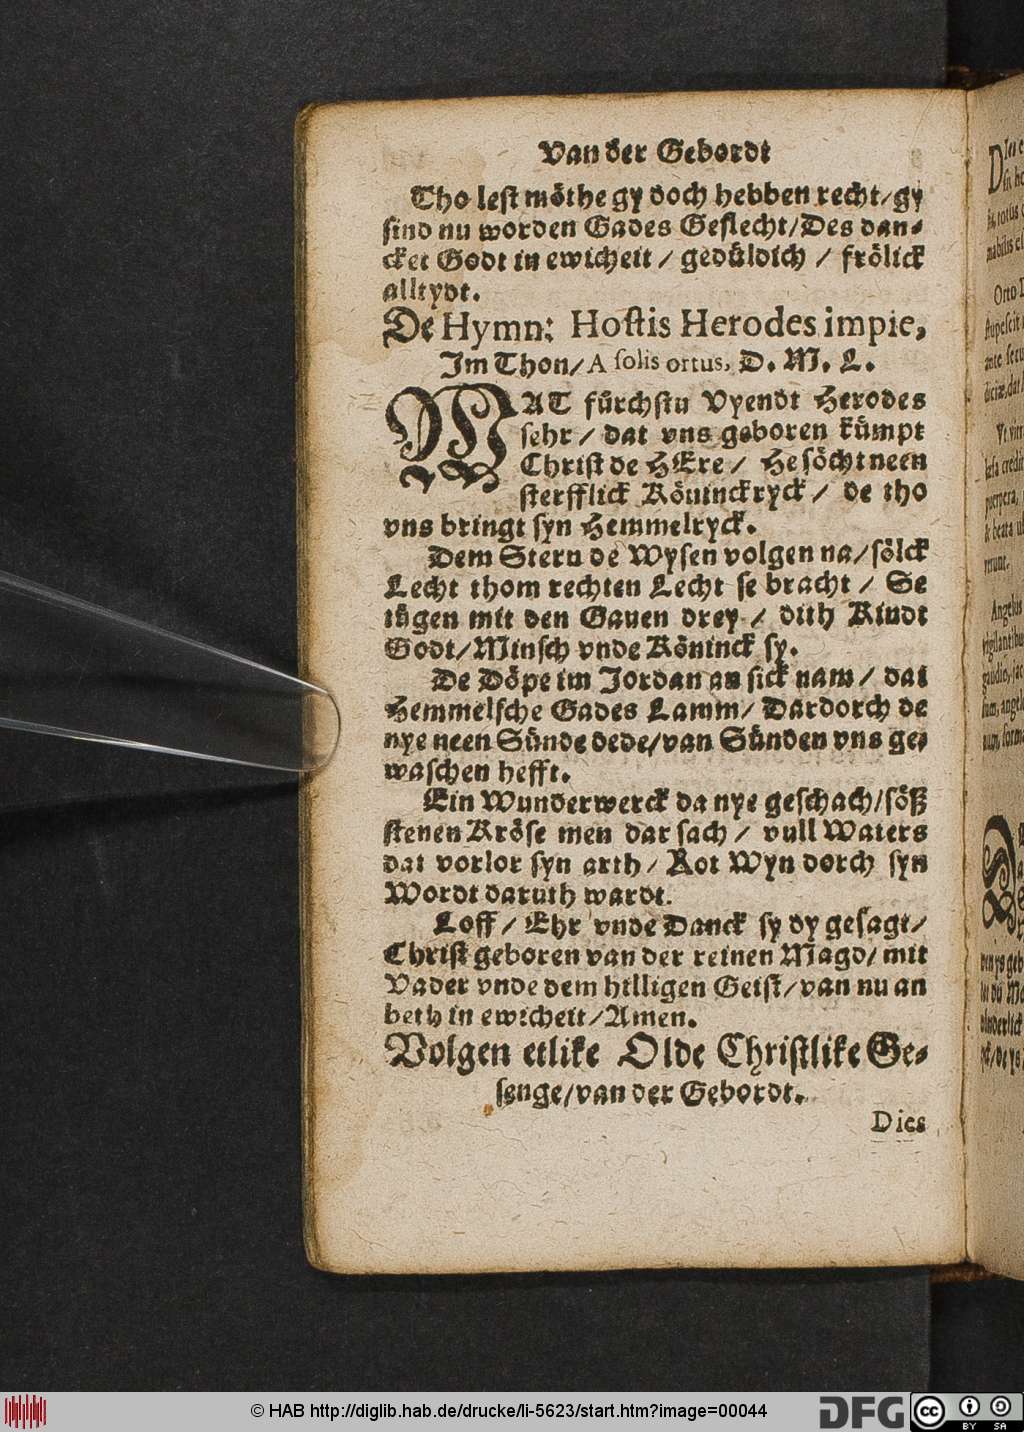 Van der Gebordt
Tho lest möthe gy doch hebben recht/gy
sind nu worden Gades Geslecht/Des dan-
cket Godt in ewicheit / gedüldich / frölick
alltydt.
De Hymn: Hostis Herodes impie,
Im Thon/A solis ortus, D. M. L.
WAT fürchstu Vyendt Herodes
sehr / dat vns geboren kümpt
Christ de HEre / He söcht neen
sterfflick Köninckryck / de tho
vns bringt syn Hemmelryck.
Dem Stern de Wysen volgen na/sölck
Lecht thom rechten Lecht se bracht / Se
tügen mit den Gauen drey / dith Kindt
Godt/Minsch vnde Köninck sy.
De Döpe im Jordan an sick nam / dat
Hemmelsche Gades Lamm/ Dardorch de
nye neen Sünde dede/van Sünden vns ge-
waschen hefft.
Ein Wunderwerck da nye geschach/söß
stenen Kröse men dar sach / vull Waters
dat vorlor syn arth / Rot Wyn dorch syn
Wordt daruth wardt.
Loff / Ehr vnde Danck sy dy gesagt/
Christ geboren van der reinen Magd/ mit
Vader vnde dem hilligen Geist/van nu an
beth in ewicheit/Amen.
Volgen etlike Olde Christlike Ge-
senge/van der Gebordt.
Dies
Orto
Angelus
© HAB http://diglib.hab.de/drucke/li-5623/start.htm?image=00044
DFG
cc
BY SA